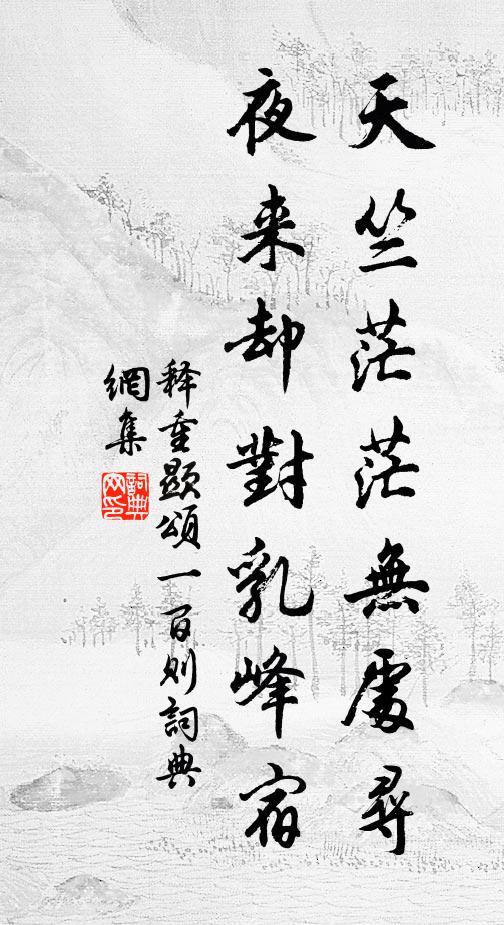 天竺茫茫無處尋
夜来却對乳峰宿
释重顯頌一百则詞典
網集
詞典
网印